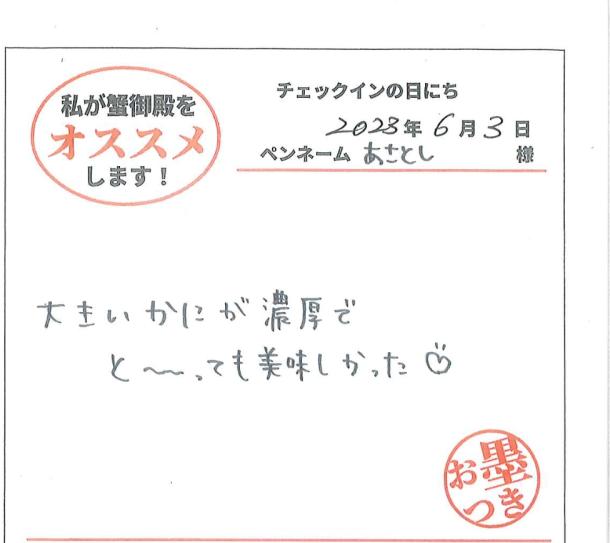 私が蟹御殿を
オススメ
します！
チェックインの日にち
2023年6月3日
ペンネーム あさとし 様
大きいかにが濃厚で
と〜〜っても美味しかった
お墨
つき